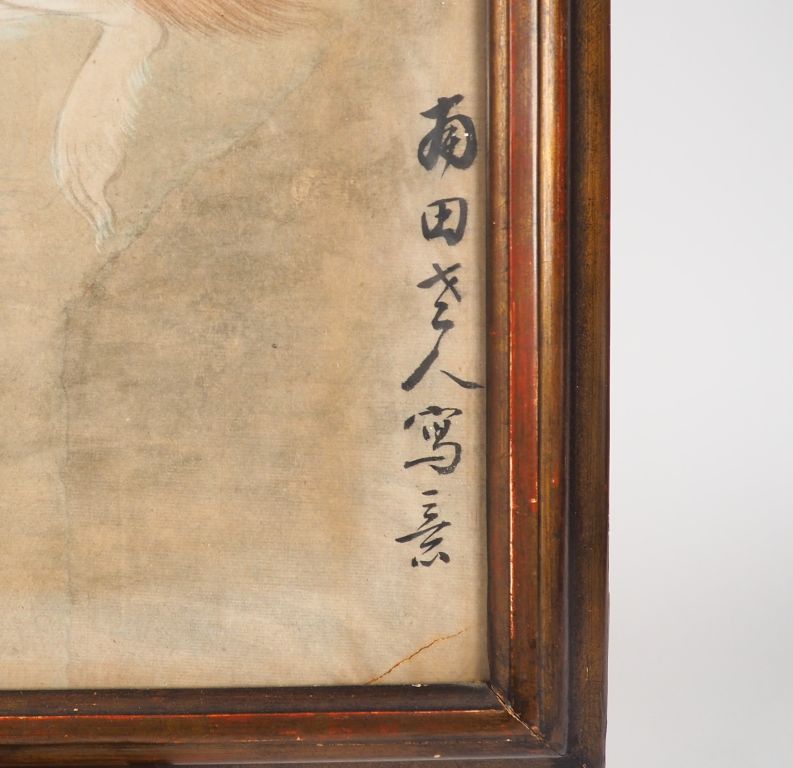 南田老人寫意